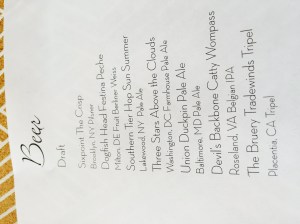 Beer
Draft
Sixpoint The Crisp
Brooklyn, NY Pilsner
Dogfish Head Festina Peche
Milton, DE Fruit Berliner Weiss
Southern Tier Hop Sun Summer
Lakewood, NY Pale Ale
Three Stars Above the Clouds
Washington, DC Farmhouse Pale Ale
Union Duckpin Pale Ale
Baltimore, MD Pale Ale
Devil's Backbone Catty Wompass
Roseland, VA Belgian IPA
The Bruery Tradewinds Tripel
Placentia, CA Tripel